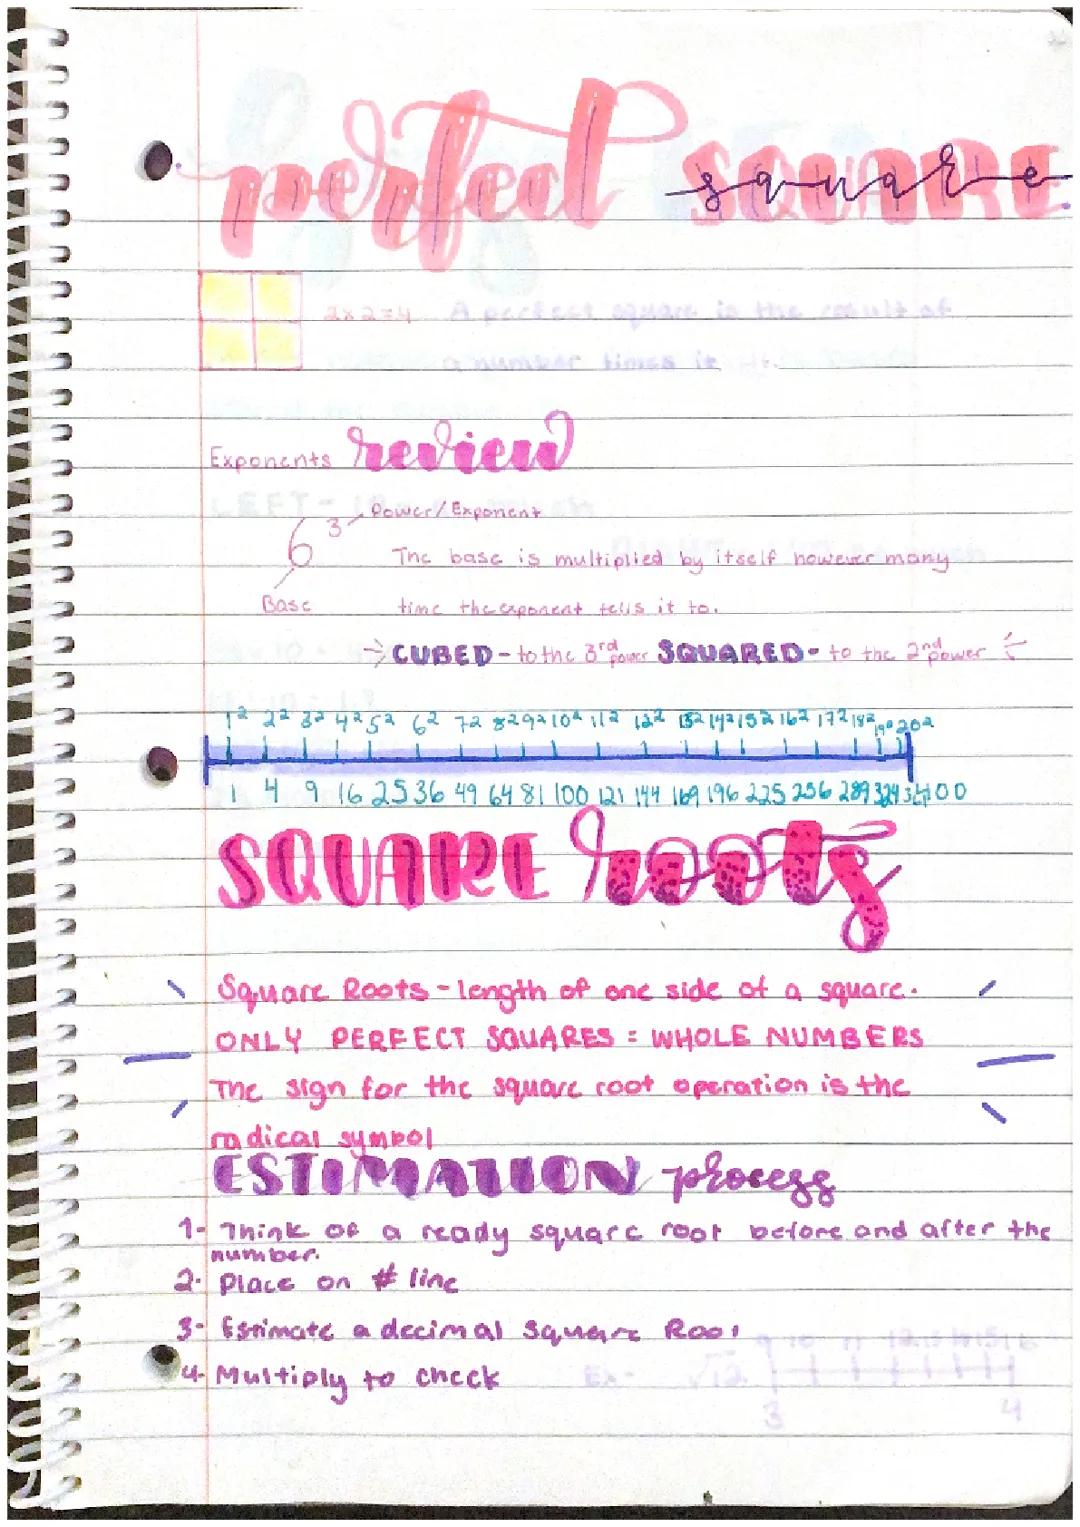 perfect SQUARE
square
2x2=4 A perfect square is the result of
a number times it
Exponents review
6 3 Power/Exponent
The base is multiplied by itself however many
Base time the exponent tells it to.
→ CUBED - to the 3rd power SQUARED - to the 2nd power
1² 2² 3² 4² 5² 6² 7² 8² 9² 10² 11² 12² 13² 14² 15² 16² 17² 18² 19² 20²
1 4 9 16 25 36 49 64 81 100 121 144 169 196 225 256 289 324 361 400
SQUARE roots
Square Roots - length of one side of a square.
ONLY PERFECT SQUARES = WHOLE NUMBERS
The sign for the square root operation is the
radical symbol
ESTIMATION process
1- Think of a ready square root before and after the
number.
2- Place on # line
3- Estimate a decimal Square Root
4- Multiply to check
Ex- √12
3 4